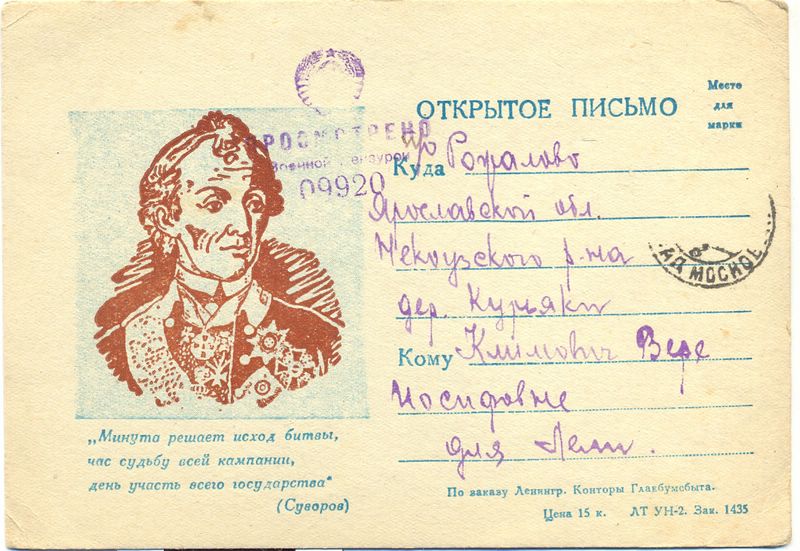 ОТКРЫТОЕ ПИСЬМО
Место
для
марки
ПРОСМОТРЕНО
Военной Цензурой
09920
Куда
п/о Рожалово
Ярославской обл.
Некоузского р-на
дер. Курьяки
Кому Климович Вере
Иосифовне
для Лели.
„Минута решает исход битвы,
час судьбу всей кампании,
день участь всего государства“
(Суворов)
По заказу Ленингр. Конторы Главбумсбыта.
Цена 15 к. ЛТ УН-2. Зак. 1435